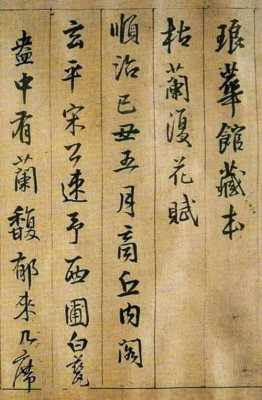 琅華館藏本
枯蘭復花賦
順治己丑五月商丘內閣
玄平宋公速予西圃白甆
盎中有蘭馥郁来几席